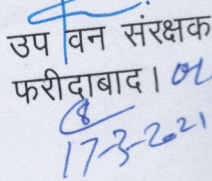 उप वन संरक्षक
फरीदाबाद।
17-3-2021